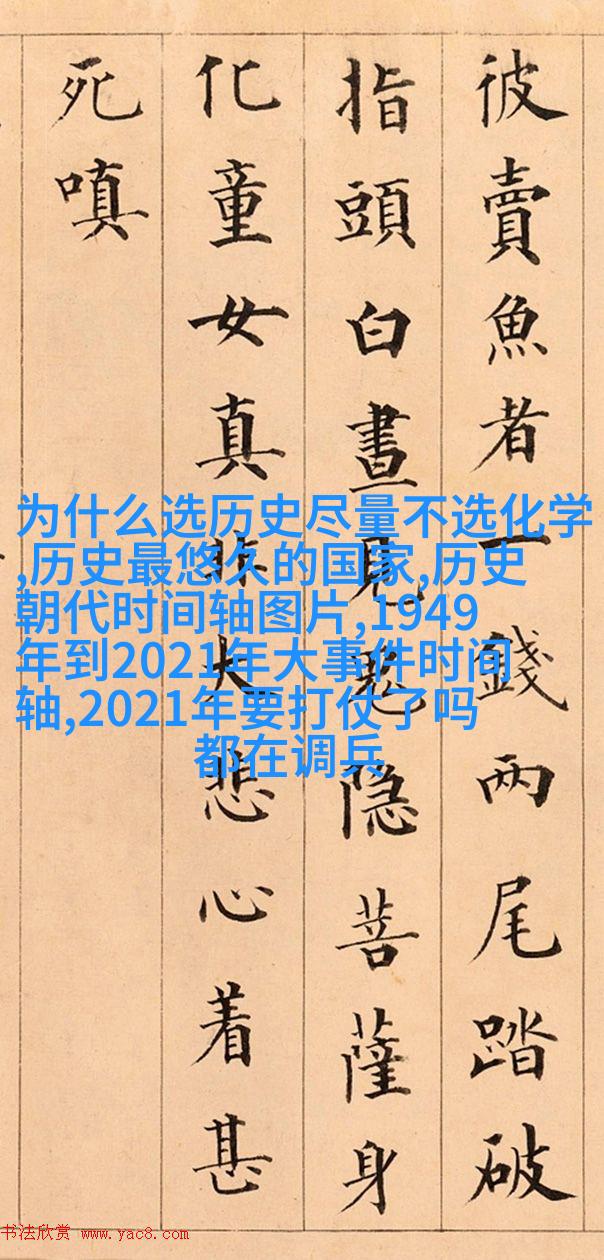 彼賣魚者一錢兩尾踏破
指頭白晝見鬼隐菩薩身
化童女真非大悲心着甚
死嗔
为什么选历史尽量不选化学
,历史最悠久的国家,历史
朝代时间轴图片,1949
年到2021年大事件时间
轴,2021年要打仗了吗
都在调兵
书法欣赏 www.yac8.com